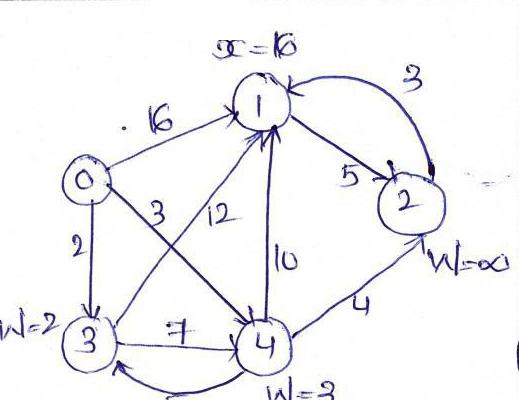 x=16
16
1
3
0
5
2
2
3
12
10
W=∞
4
W=2
3
7
4
W=3